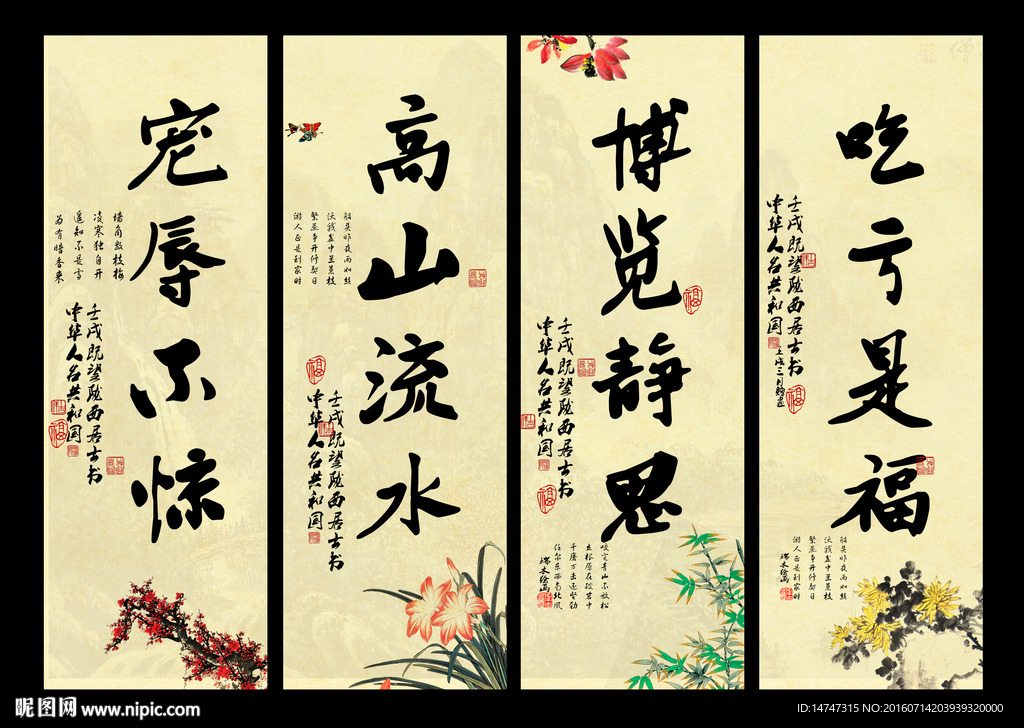 宠辱不惊
墙角数枝梅
凌寒独自开
遥知不是雪
为有暗香来
壬戌既望陇西居士书
中华人名共和国
高山流水
壬戌既望陇西居士书
中华人名共和国
福
博览静思
福
壬戌既望陇西居士书
中华人名共和国
福
咬定青山不放松
立根原在破岩中
千磨万击还坚劲
任尔东西南北风
吃亏是福
壬戌既望陇西居士书
中华人名共和国
福
昵图网 www.nipic.com
ID:14747315 NO:20160714203939320000